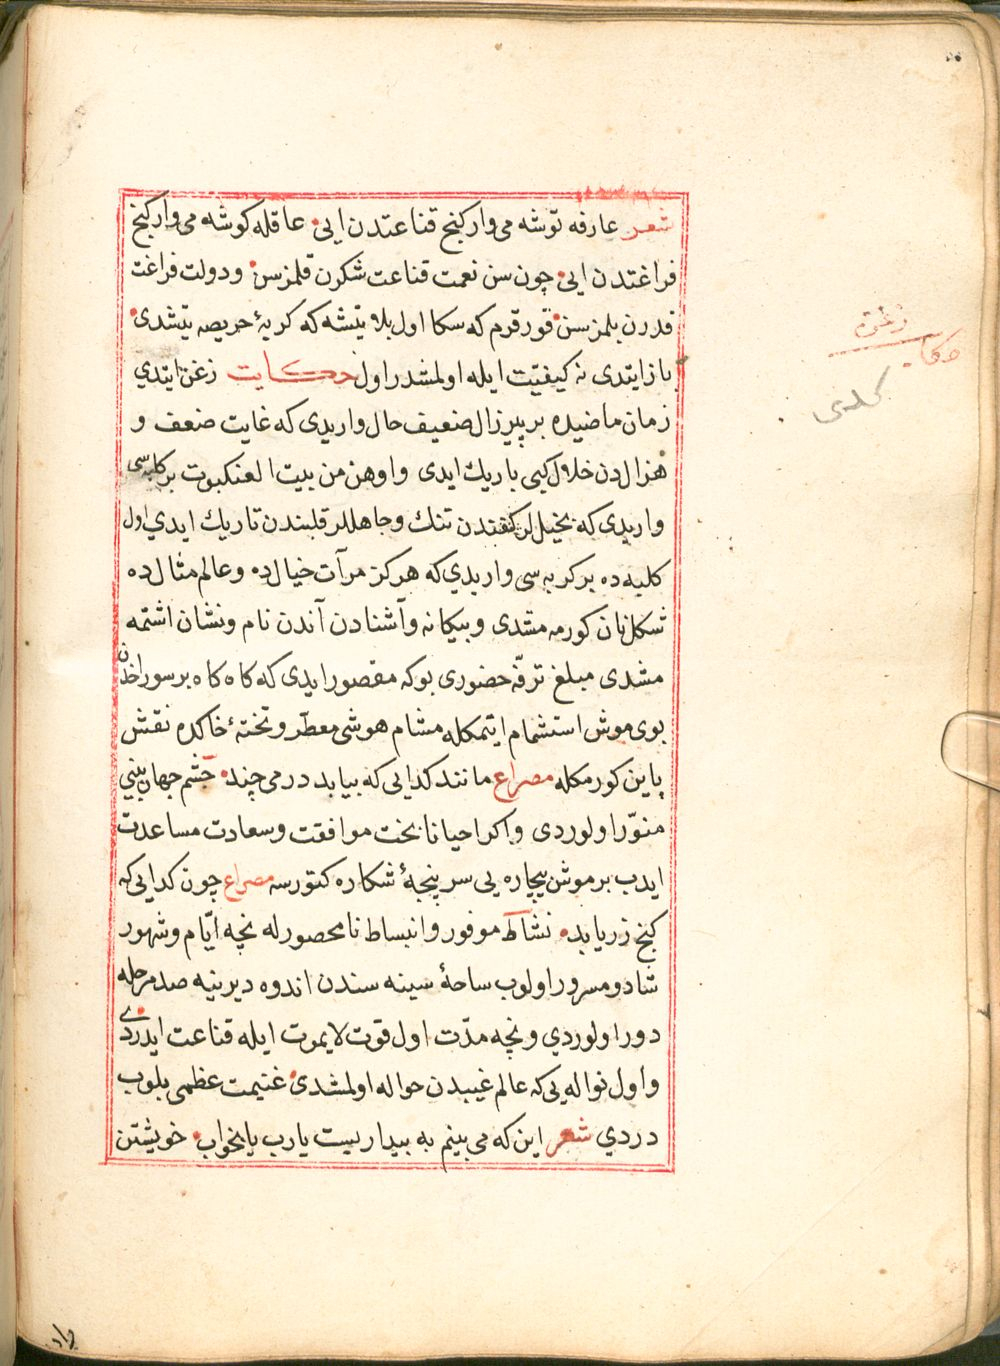 شعر عارفه توشه می وار کنج قناعتدن ایی عاقله کوشه می وار کنج
فراغتدن ایی چون سن نعمت قناعت شکرن قلمزسن و دولت فراغت
قدرن بلمزسن قورقرم که سکا اول بلا یتیشه که کربهٔ حریصه یتشدی
باز ایتدی نه کیفیّت ایله اولمشدر اول حکایت زغن ایتدی
زمان ماضیده بر پیرزال ضعیف حال واریدی که غایت ضعف و
هزالدن خلال کبی باریك ایدی و اوهن من بیت العنکبوت بر کلبه سی
واریدی که بخیللر کفندن تنك و جاهللر قلبندن تاریك ایدی اول
کلبه ده بر کربه سی واریدی که هرکز مرآت خیالده و عالم مثالده
شکل نان کورمه مشدی و بیکانه و آشنادن آندن نام و نشان اشتمه
مشدی مبلغ ترفّه حضوری بو که مقصور ایدی که کاه کاه بر سوراخدن
بوی موش استشمام ایتمکله مشام هوشی معطّر و تختهٔ خاکده نقش
پاین کورمکله مصراع مانند کدایی که بیابد درمی چند چشم جهان بینی
منوّر اولوردی و اکر احیانا بخت موافقت و سعادت مساعدت
ایدب بر موش بیچاره یی سرپنجهٔ شکاره کتورسه مصراع چون کدایی که
کنج زر یابد نشاط موفور و انبساط نامحصورله نچه ایّام و شهور
شاد و مسرور اولوب ساحهٔ سینه سندن اندوه دیرینیه صد مرحله
دور اولوردی و نچه مدّت اول قوت لایموت ایله قناعت ایدردی
و اول نواله یی که عالم غیبدن حواله اولمشدی غنیمت عظمی بلوب
دردی شعر این که می بینم به بیداریست یارب یا بخواب خویشتن
حکایت
زغن
کلدی